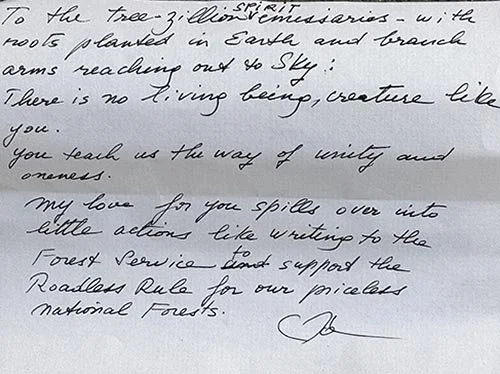 To the tree-zillion SPIRIT emissiaries - with
roots planted in Earth and branch
arms reaching out to Sky:
There is no living being, creature like
you.
You teach us the way of unity and
oneness.
My love for you spills over into
little actions like writing to the
Forest Service to support the
Roadless Rule for our priceless
national Forests.